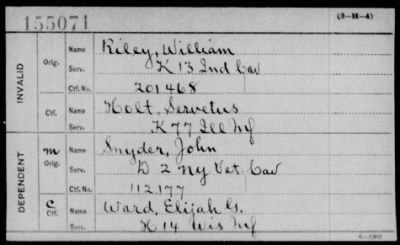 155071
(3-H-4)
INVALID
Orig. Name Riley, William
Serv. K 13 Ind Cav
Ctf. No. 201468
Ctf. Name Holt, Servetus
Serv. K 77 Ill Inf
DEPENDENT
m Orig. Name Snyder, John
Serv. D 2 Ny Vet. Cav
Ctf. No. 112177
C Ctf. Name Ward, Elijah G.
Serv. H 14 Wis Inf